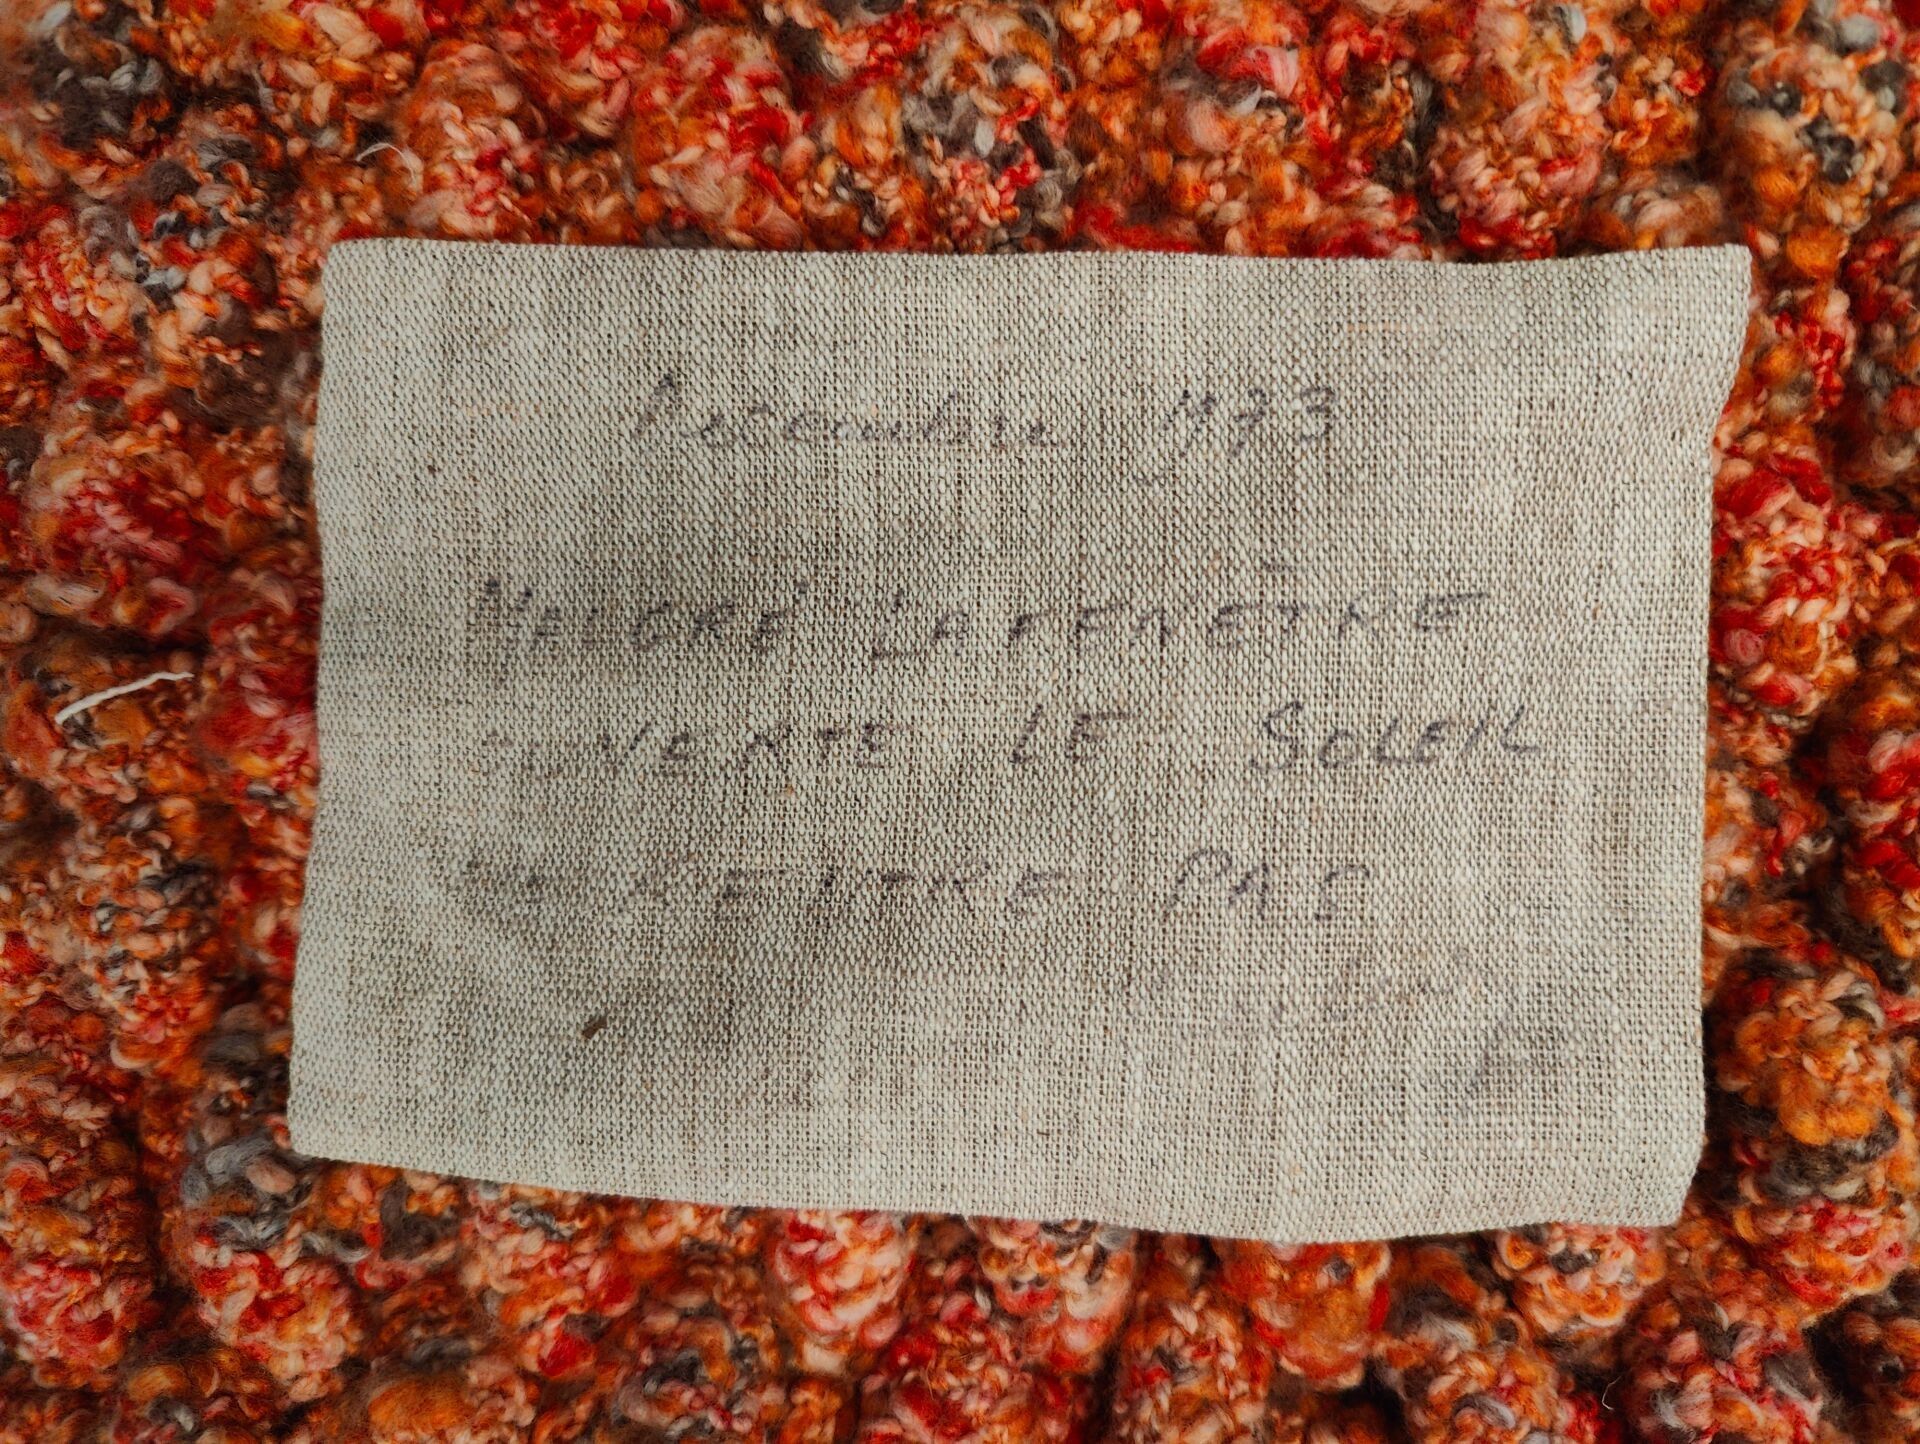 Décembre 1973
MALGRÉ LA FENETRE
OUVERTE LE SOLEIL
NE RENTRE PAS